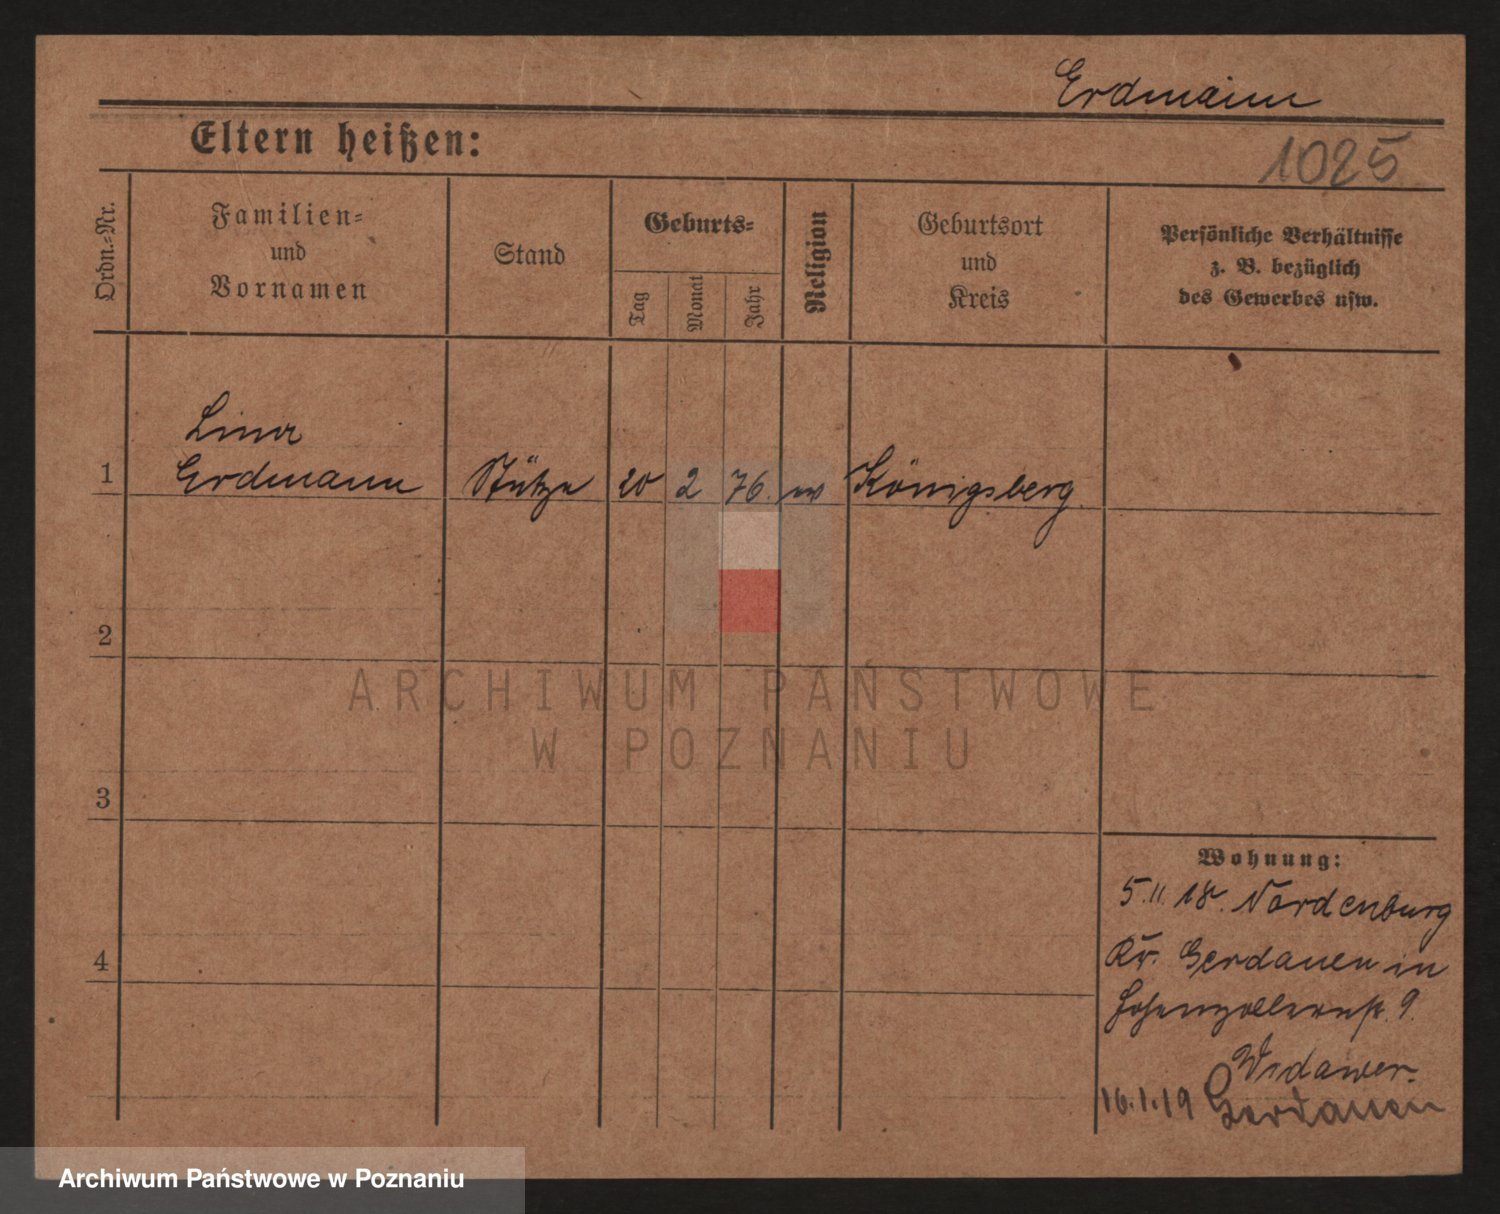 Erdmann
Eltern heißen:
1025
Ordn.-Nr.
Familien-
und
Vornamen
Stand
Geburts-
Tag
Monat
Jahr
Religion
Geburtsort
und
Kreis
Persönliche Verhältnisse
z. B. bezüglich
des Gewerbes usw.
Lina
1 Erdmann Stütze 20 2 76. Königsberg.
2
ARCHIWUM PAŃSTWOWE
W POZNANIU
3
Wohnung:
5.11.18. Nordenburg
4
Kr. Gerdauen in
Hohenzollernstr. 9.
16.1.19 Gerdauen
Archiwum Państwowe w Poznaniu